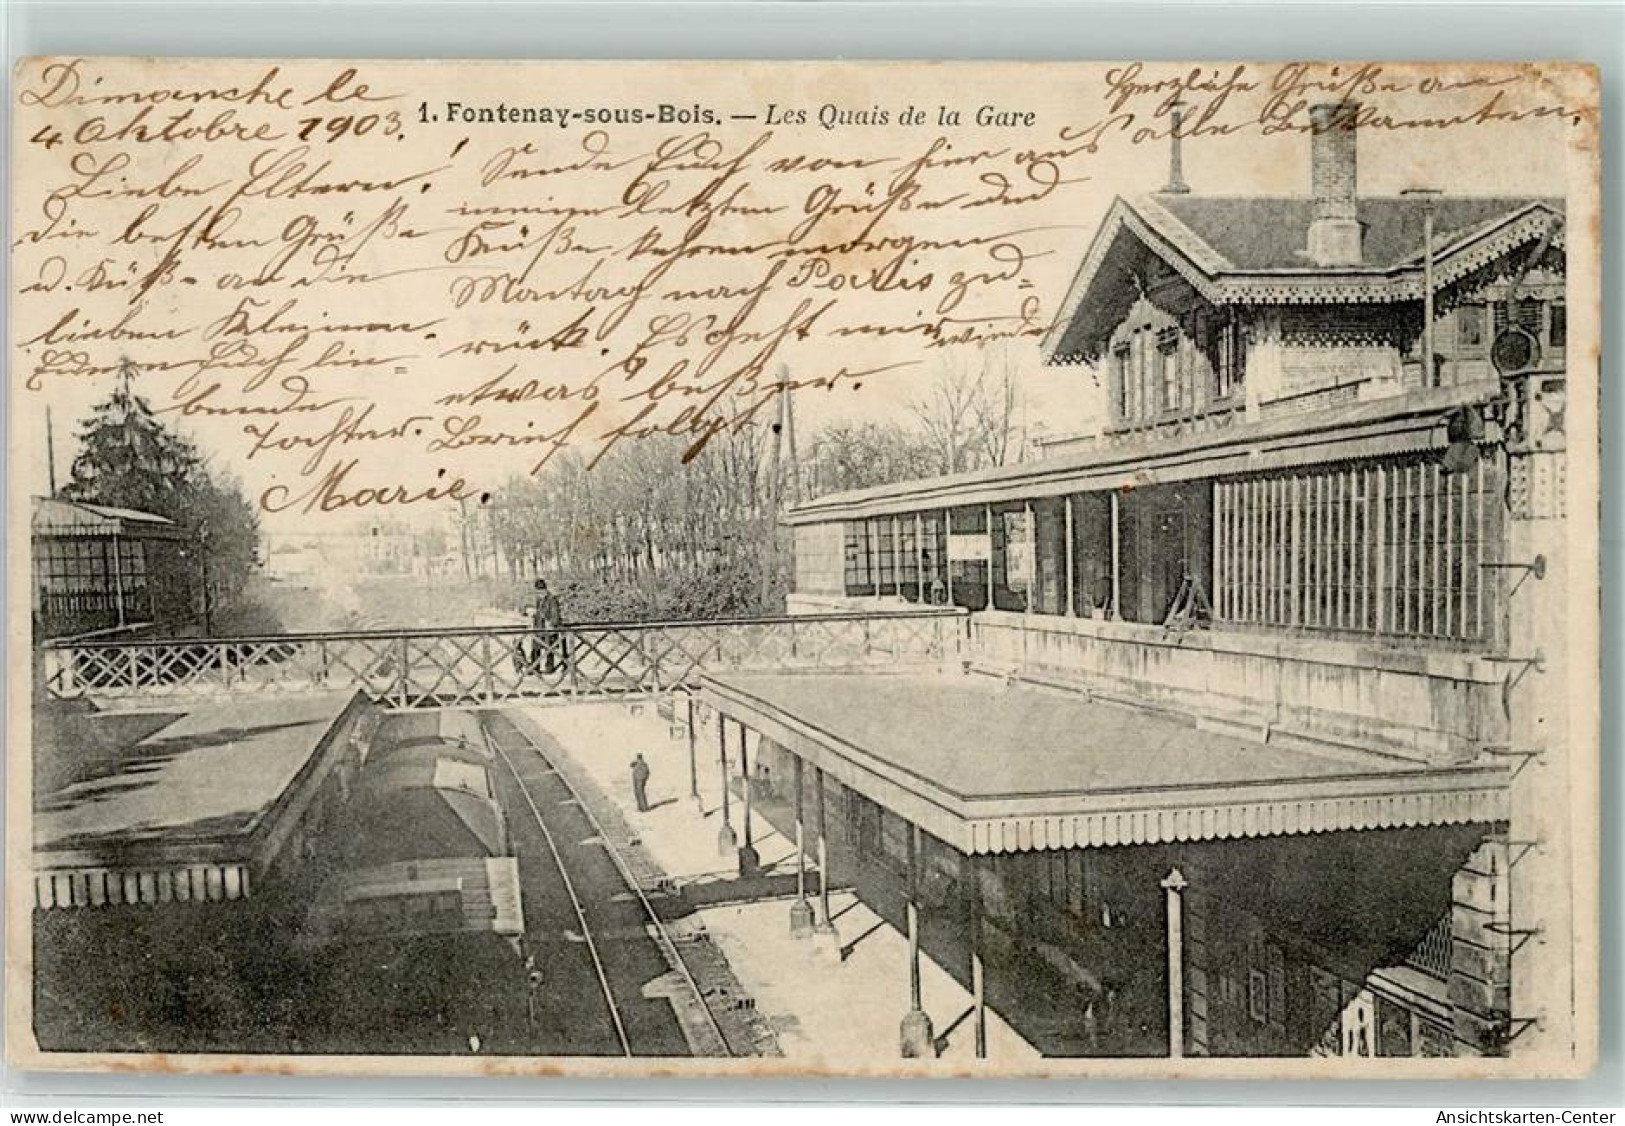 Dimanche le
4 Oktobre 1903.
1. Fontenay-sous-Bois. — Les Quais de la Gare
Herzliche Grüße an
alle Bekannten.
Liebe Eltern!
Sende Euch von hier aus
die besten Grüße
meine letzten Grüße und
u. Küße an die
Küße kehren morgen
Montag nach Paris zu=
lieben Kleinen.
rück. Es geht mir wieder
Eurer Euch lie=
etwas beßer.
bende
Tochter. Brief folgt
Marie.
delcampe.net
Ansichtskarten-Center